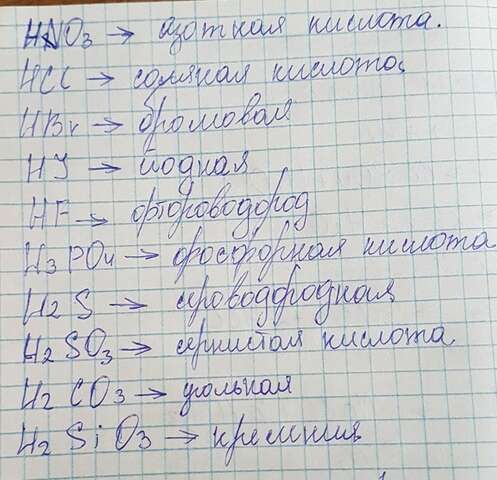 HNO3 → азотная кислота.
HCl → соляная кислота
HBr → бромовая
HJ → йодная
HF → фтороводород
H3PO4 → фосфорная кислота
H2S → сероводородная
H2SO3 → сернистая кислота
H2CO3 → угольная
H2SiO3 → кремния